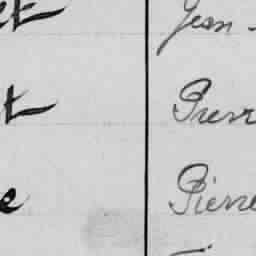 et Jean -
t Pierr
e Pierre